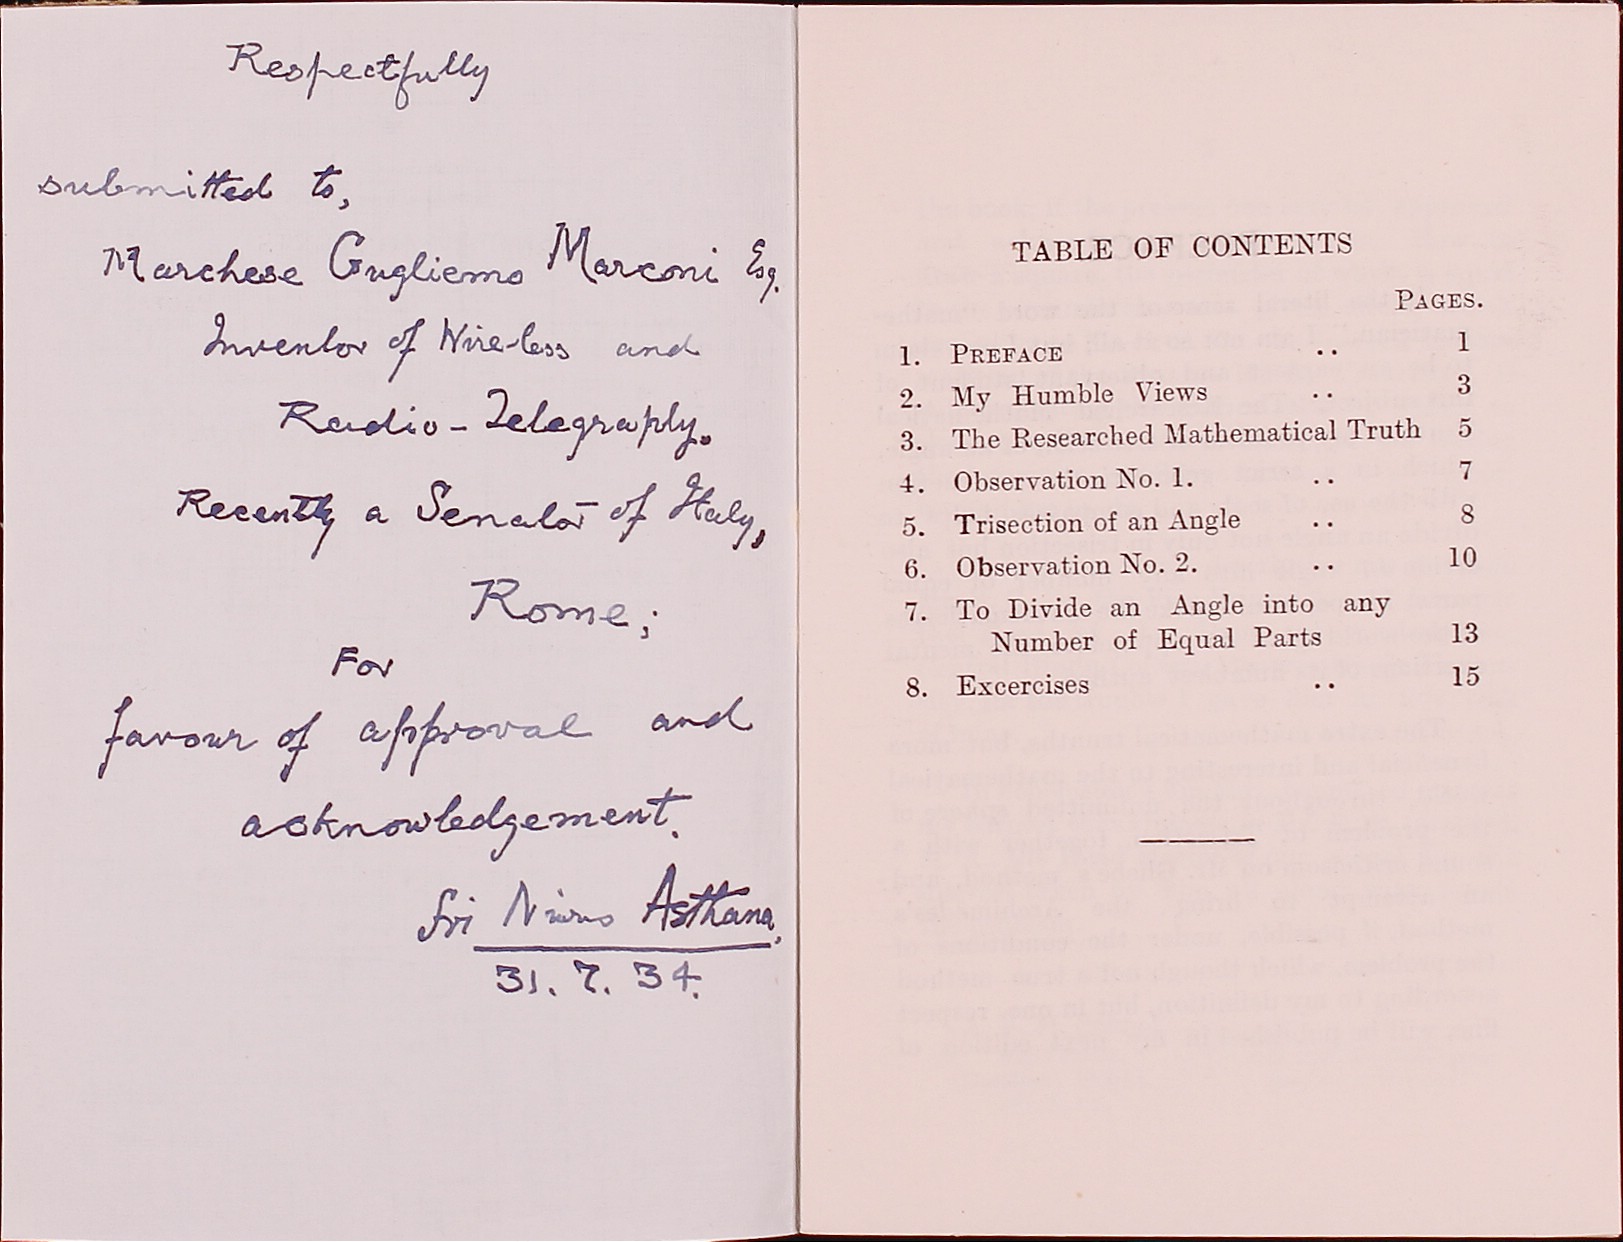 Respectfully
submitted to,
Marchese Gugliemo Marconi Esq.
Inventor of Wire-less and
Radio-Telegraphy.
Recently a Senator of Italy,
Rome;
For
favour of approval and
acknowledgement.
Sri Asthana,
31. 7. 34.
TABLE OF CONTENTS
PAGES.
1. PREFACE .. 1
2. My Humble Views .. 3
3. The Researched Mathematical Truth 5
4. Observation No. 1. .. 7
5. Trisection of an Angle .. 8
6. Observation No. 2. .. 10
7. To Divide an Angle into any
Number of Equal Parts 13
8. Excercises .. 15